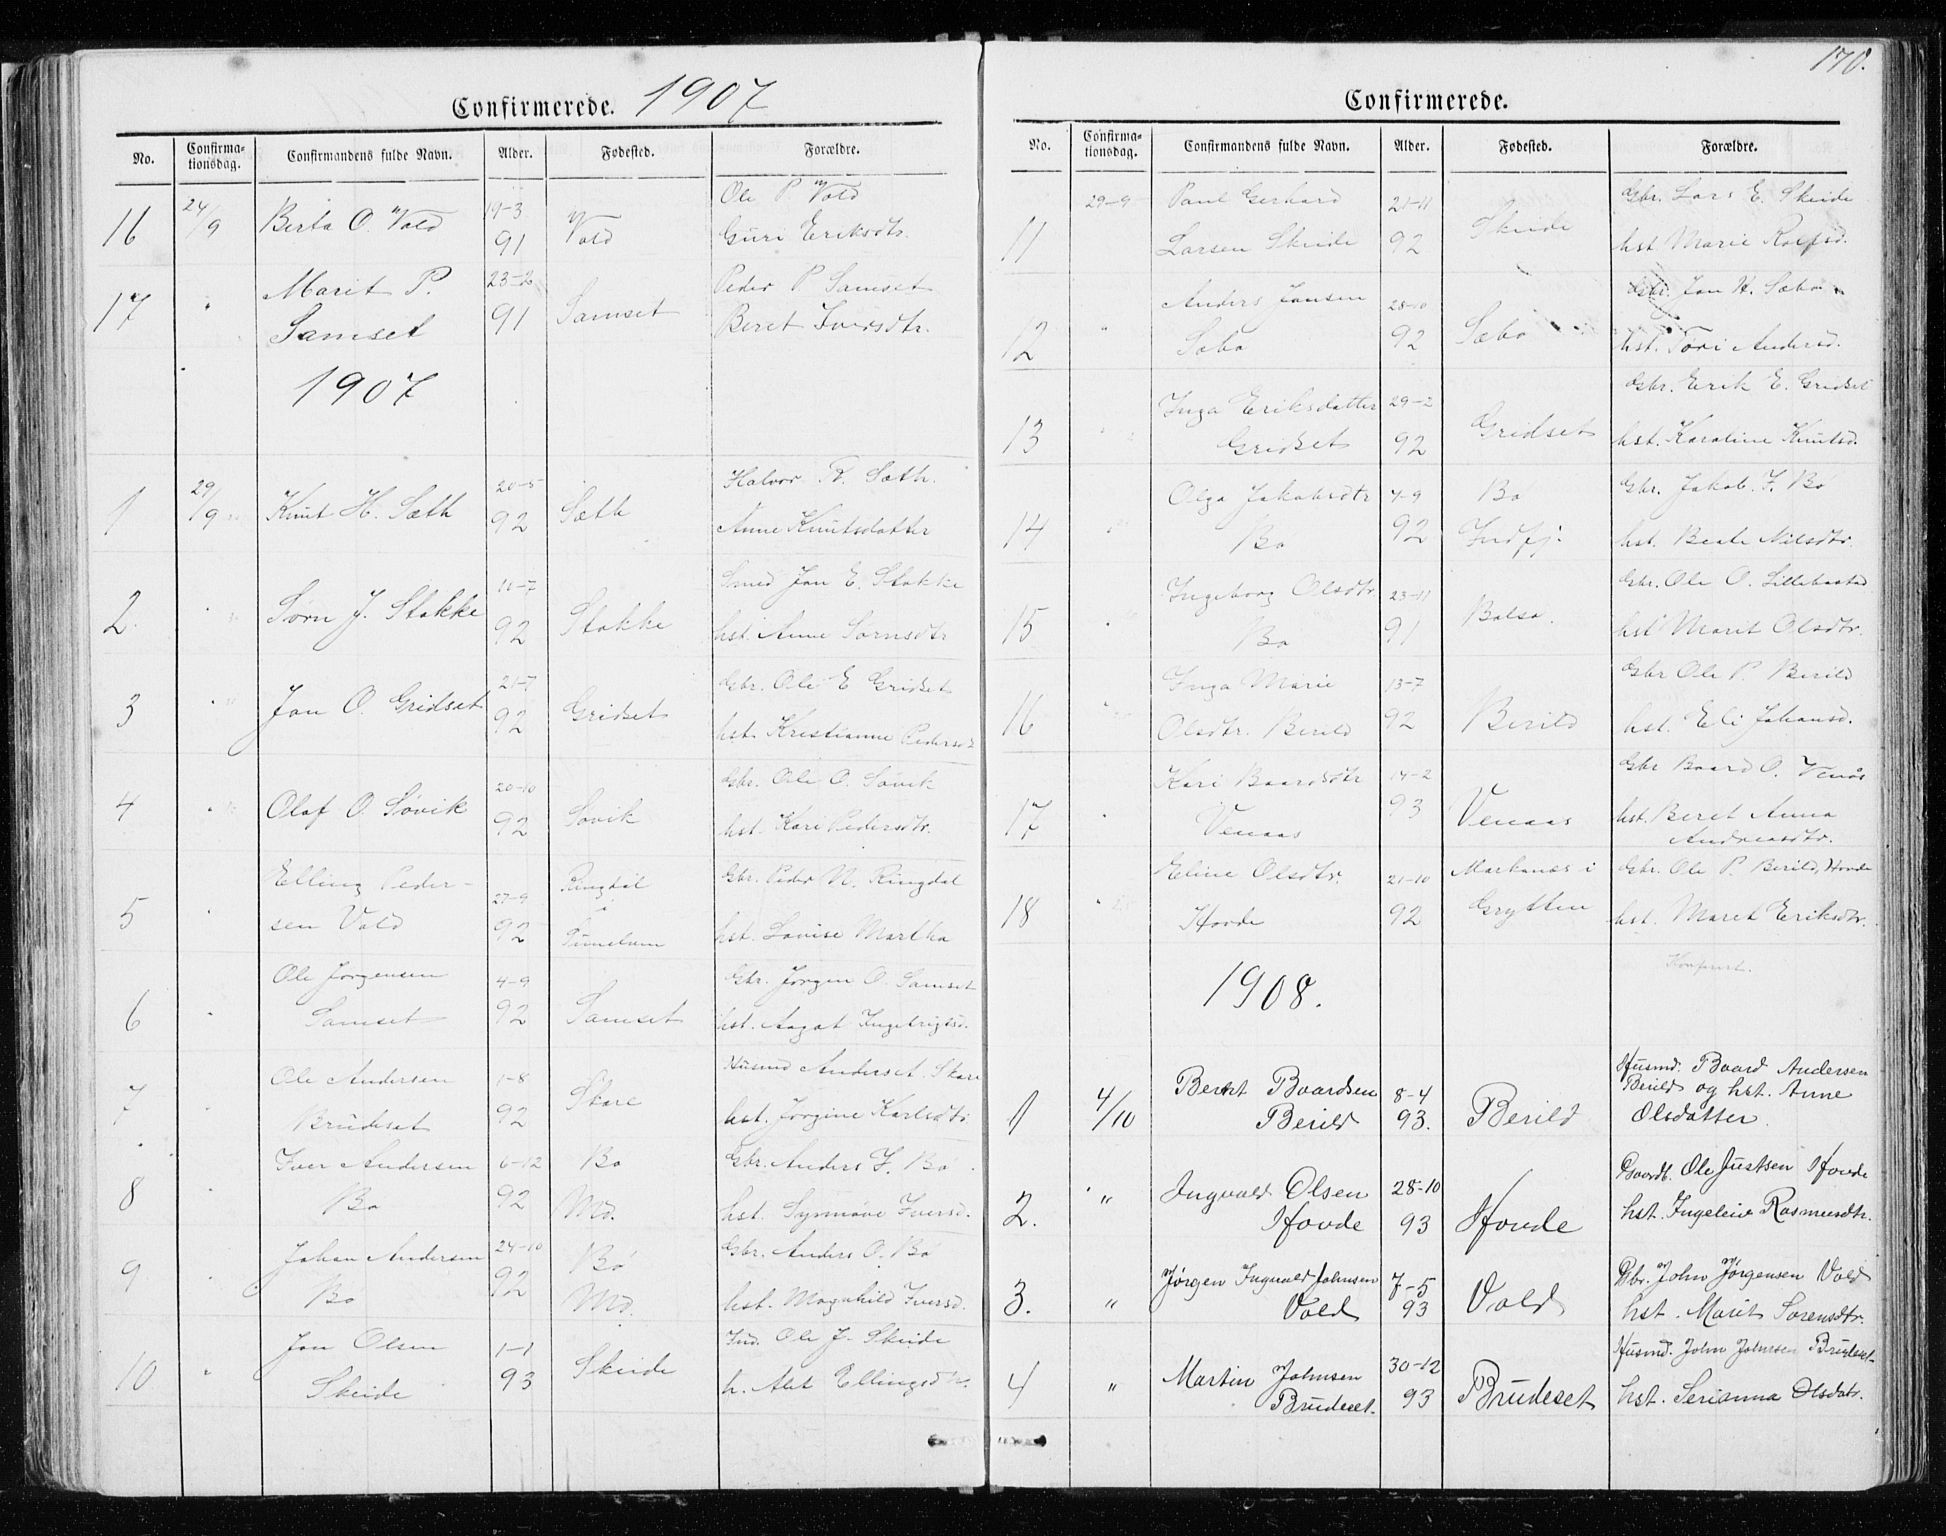 Confirmerede. 1907
No. Confirma-tionsdag. Confirmandens fulde Navn. Alder. Fødested. Forældre.
16 24/9 Berta O. Vold 19-3 91 Vold Ole P. Vold
Guri Eriksdtr.
17 " Marit P. 23-2 Samset Peder P Samset
Samset 91 Beret Iversdtr.
1907
1 29/9 Knut H. Sæth 20-5 92 Sæth Halvor K. Sæth.
Anne Knutsdatter
2. " Sørn J. Stokke 10-7 92 Stokke Smed Jon E. Stokke
hst. Anne Sørnsdtr
3 " Jon O. Gridset 21-7 92 Gridset Gbr. Ole E Gridset
hst. Kristianne Pedersd.
4 " Olaf O. Søvik 20-10 92 Søvik Gbr. Ole O. Søvik
hst. Kari Pedersdtr.
5 " Elling Peder- 27-9 Ringdal Gbr. Peder N. Ringdal
sen Vold 92 hst. Lovise Martha
6 " Ole Jørgensen 4-9 Samset Gbr. Jørgen O. Samset
Samset 92 hst. Aagot Ingebrigtsd.
7 " Ole Andersen 1-8 Skare Husmd Anders Skare
Brudeset 92 hst. Jørgine Karlsdtr.
8 " Iver Andersen 6-12 Bø Gbr. Anders I. Bø
Bø 92 Md. hst. Synnøve Iversd.
9 " Johan Andersen 24-10 Bø Gbr. Anders O. Bø
Bø 92 Md. hst. Magnhild Iversd.
10 " Jon Olsen 1-1 Skeide Ole J. Skeide
Skeide 93 h. Ellingsdtr.
170.
Confirmerede.
No. Confirma-tionsdag. Confirmandens fulde Navn. Alder. Fødested. Forældre.
11 29-9 Paul Gerhard 21-11 Skeide Gbr. Lars E. Skeide
Larsen Skeide 92 hst. Marie
12 " Anders Jonsen 28-10 Sæbø Gbr. Jon H. Sæbø
Sæbø 92 hst. Andersd.
13 " Inga Eriksdatter 29-2 Gridset Gbr. Erik E. Gridset
Gridset 92 hst. Karoline Knutsd.
14 Olga Jakobsdtr 4-9 Bø Gbr. Jakob I. Bø
Bø 92 Indfj. hst. Beate Nilsdtr.
15 " Ingeborg Olsdtr 23-11 Gbr. Ole O. Lillebostad
Bø 91 hst Marit Olsdtr.
16 Inga Marie 13-7 Berild Gbr Ole P. Berild
Olsdtr. Berild 92 hst. Eli Johansd.
17 " Kari Baardsdtr 14-2 Venaas Gbr Baard O. Venås
Venaas 93 hst. Beret Anna
Andreasdtr.
18 Eline Olsdtr. 21-10 Markanæs i Gbr. Ole P. Berild, Hovde
Hovde 92 Grytten hst. Maret Eriksdtr.
1908.
1 4/10 Bernt Baardsen 8-4 Berild Husmd. Baard Andersen
Berild 93. Berild og hst. Anne
Olsdatter.
2. " Ingvald Olsen 28-10 Hovde Ole Justsen Hovde
Hovde 93 hst. Ingeleiv Rasmusdtr.
3. " Jørgen Ingvald Johnsen 7-5 Vold Gbr. John Jørgensen Vold
Vold 93 hst. Marit Sørensdtr.
4 " Martin Johnsen 30-12 Brudeset Husmd. John Johnsen Brudeset
Brudeset. 93 hst. Serianna Olsdatr.